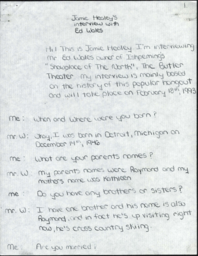 1
Jamie Healey's
interview with
Ed Wales
Hi! This is Jamie Healey. I'm interviewing
Mr. Ed Wales owner of Ishpeming's
"Showplace of The North", The Butler
Theater. My interview is mainly based
on the history of this popular hangout
and will take place on February 18th, 1993
Me: When and where were you born?
Mr. W: Okay, I was born in Detroit, Michigan on
December 14th, 1946
Me: What are your parents names?
Mr. W: my parents names were Raymond and my
mothers name was Kathleen
Me: Do you have any brothers or sisters?
Mr. W: I have one brother and his name is also
Raymond, and in fact he's up visiting right
now, he's cross country skiing.
Me: Are you married?